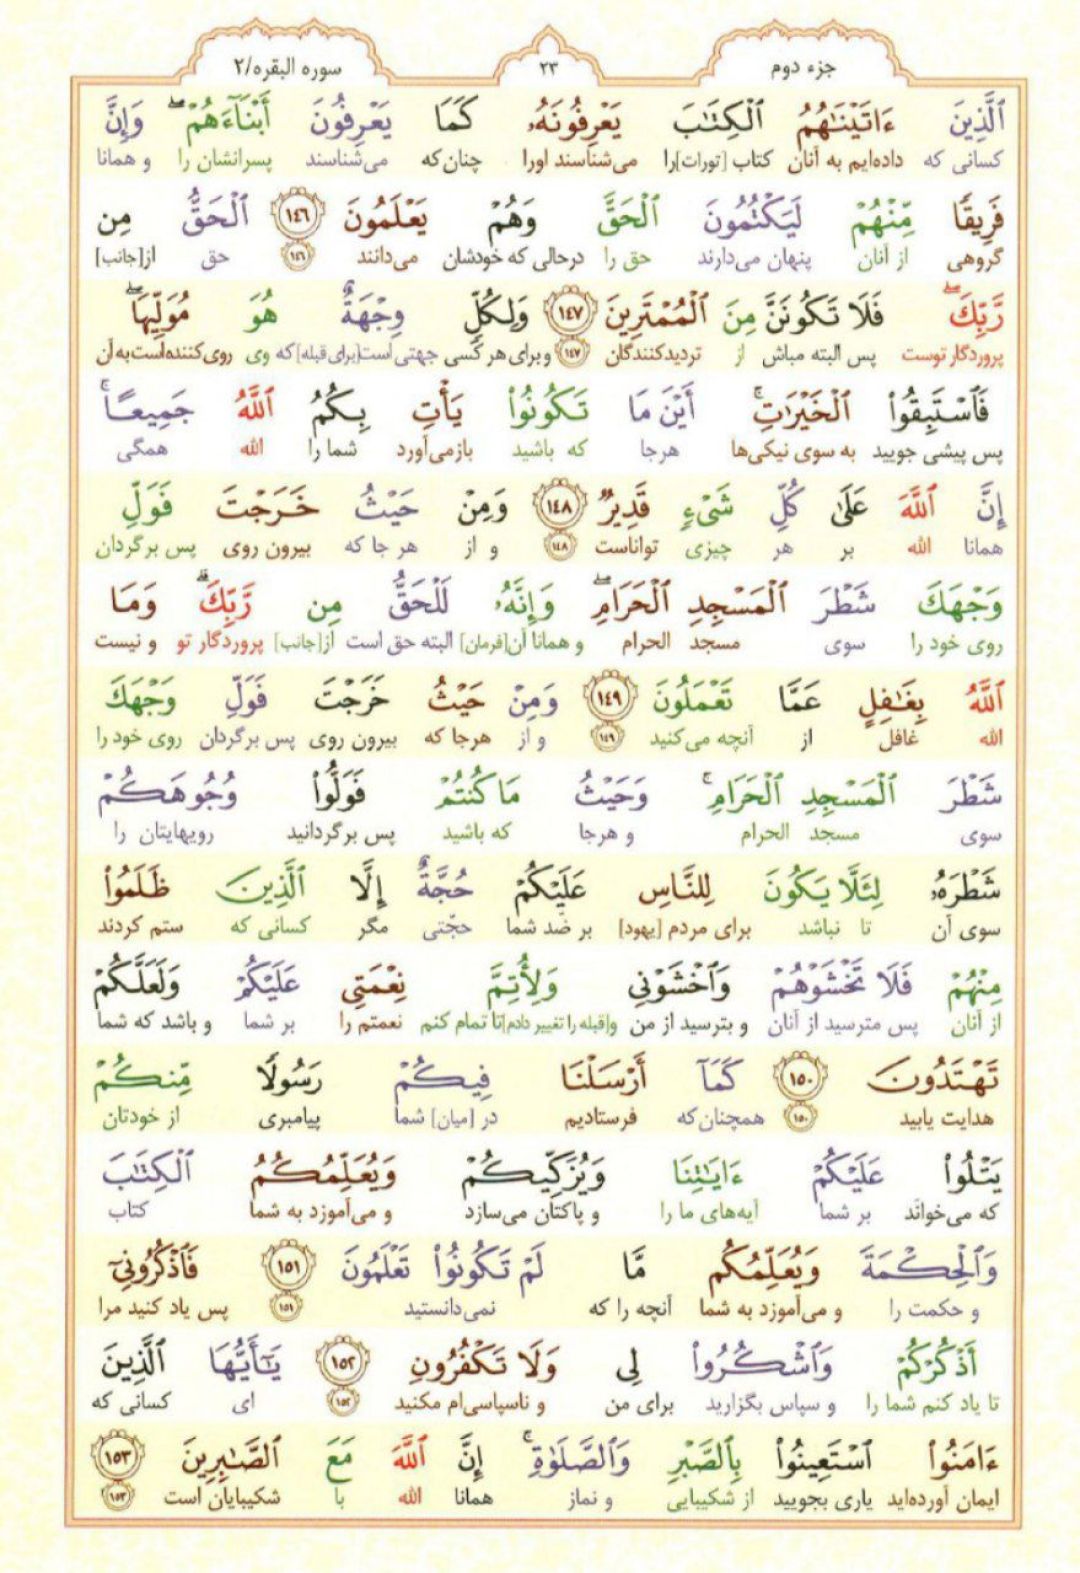 جزء دوم
۲۳
سوره البقره/۲
ٱلَّذِينَ ءَاتَيْنَـٰهُمُ ٱلْكِتَـٰبَ يَعْرِفُونَهُۥ كَمَا يَعْرِفُونَ أَبْنَآءَهُمْ ۖ وَإِنَّ
کسانی که داده‌ایم به آنان کتاب [تورات]را می‌شناسند اورا چنان‌که می‌شناسند پسرانشان را و همانا
فَرِيقًا مِّنْهُمْ لَيَكْتُمُونَ ٱلْحَقَّ وَهُمْ يَعْلَمُونَ ١٤٦ ٱلْحَقُّ مِن
گروهی از آنان پنهان می‌دارند حق را درحالی که خودشان می‌دانند ۱۴۶ حق از[جانب]
رَّبِّكَ ۖ فَلَا تَكُونَنَّ مِنَ ٱلْمُمْتَرِينَ ١٤٧ وَلِكُلٍّ وِجْهَةٌ هُوَ مُوَلِّيهَا ۖ
پروردگار توست پس البته مباش از تردیدکنندگان ۱۴۷ و برای هر کسی جهتی است[برای قبله]که وی روی‌کننده‌است به آن
فَٱسْتَبِقُوا۟ ٱلْخَيْرَٰتِ ۚ أَيْنَ مَا تَكُونُوا۟ يَأْتِ بِكُمُ ٱللَّهُ جَمِيعًا ۚ
پس پیشی جویید به سوی نیکی‌ها هرجا که باشید بازمی‌آورد شما را الله همگی
إِنَّ ٱللَّهَ عَلَىٰ كُلِّ شَىْءٍ قَدِيرٌ ١٤٨ وَمِنْ حَيْثُ خَرَجْتَ فَوَلِّ
همانا الله بر هر چیزی تواناست ۱۴۸ و از هر جا که بیرون روی پس برگردان
وَجْهَكَ شَطْرَ ٱلْمَسْجِدِ ٱلْحَرَامِ ۖ وَإِنَّهُۥ لَلْحَقُّ مِن رَّبِّكَ ۗ وَمَا
روی خود را سوی مسجد الحرام و همانا آن[فرمان] البته حق است از[جانب] پروردگار تو و نیست
ٱللَّهُ بِغَـٰفِلٍ عَمَّا تَعْمَلُونَ ١٤٩ وَمِنْ حَيْثُ خَرَجْتَ فَوَلِّ وَجْهَكَ
الله غافل از آنچه می‌کنید ۱۴۹ و از هرجا که بیرون روی پس برگردان روی خود را
شَطْرَ ٱلْمَسْجِدِ ٱلْحَرَامِ ۚ وَحَيْثُ مَا كُنتُمْ فَوَلُّوا۟ وُجُوهَكُمْ
سوی مسجد الحرام و هرجا که باشید پس برگردانید رویهایتان را
شَطْرَهُۥ لِئَلَّا يَكُونَ لِلنَّاسِ عَلَيْكُمْ حُجَّةٌ إِلَّا ٱلَّذِينَ ظَلَمُوا۟
سوی آن تا نباشد برای مردم [یهود] بر ضد شما حجّتی مگر کسانی که ستم کردند
مِنْهُمْ فَلَا تَخْشَوْهُمْ وَٱخْشَوْنِى وَلِأُتِمَّ نِعْمَتِى عَلَيْكُمْ وَلَعَلَّكُمْ
از آنان پس مترسید از آنان و بترسید از من و[قبله را تغییر دادم]تا تمام کنم نعمتم را بر شما و باشد که شما
تَهْتَدُونَ ١٥٠ كَمَآ أَرْسَلْنَا فِيكُمْ رَسُولًا مِّنكُمْ
هدایت یابید ۱۵۰ همچنان‌که فرستادیم در [میان] شما پیامبری از خودتان
يَتْلُوا۟ عَلَيْكُمْ ءَايَـٰتِنَا وَيُزَكِّيكُمْ وَيُعَلِّمُكُمُ ٱلْكِتَـٰبَ
که می‌خواند بر شما آیه‌های ما را و پاکتان می‌سازد و می‌آموزد به شما کتاب
وَٱلْحِكْمَةَ وَيُعَلِّمُكُم مَّا لَمْ تَكُونُوا۟ تَعْلَمُونَ ١٥١ فَٱذْكُرُونِىٓ
و حکمت را و می‌آموزد به شما آنچه را که نمی‌دانستید ۱۵۱ پس یاد کنید مرا
أَذْكُرْكُمْ وَٱشْكُرُوا۟ لِى وَلَا تَكْفُرُونِ ١٥٢ يَـٰٓأَيُّهَا ٱلَّذِينَ
تا یاد کنم شما را و سپاس بگزارید برای من و ناسپاسی‌ام مکنید ۱۵۲ ای کسانی که
ءَامَنُوا۟ ٱسْتَعِينُوا۟ بِٱلصَّبْرِ وَٱلصَّلَوٰةِ ۚ إِنَّ ٱللَّهَ مَعَ ٱلصَّـٰبِرِينَ ١٥٣
ایمان آورده‌اید یاری بجویید از شکیبایی و نماز همانا الله با شکیبایان است ۱۵۳